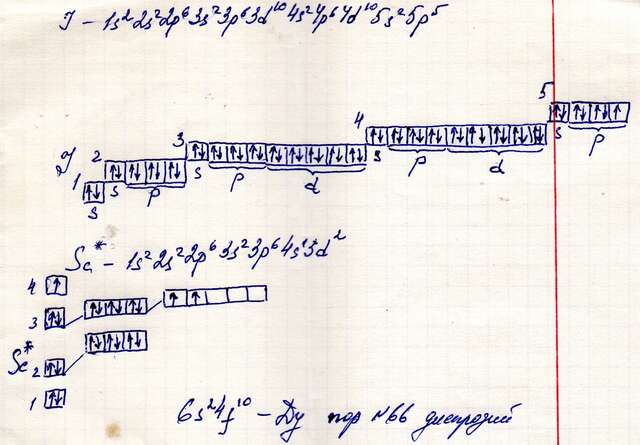 J - 1s²2s²2p⁶3s²3p⁶3d¹⁰4s²4p⁶4d¹⁰5s²5p⁵
5
4
3
2
J
1
s
s
p
s
p
d
s
p
d
s
p
Sc* - 1s²2s²2p⁶3s²3p⁶4s¹3d²
4
3
Sc*
2
1
6s²4f¹⁰ - Dy пор №66 диспрозий